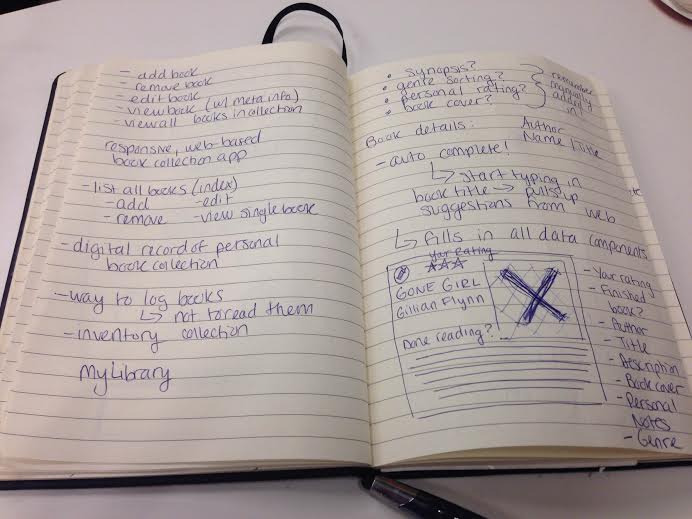 - add book
- remove book
- edit book
- view book (w/ meta info)
- view all books in collection
responsive, web-based
book collection app
- list all books (index)
- add - edit
- remove - view single book
- digital record of personal
book collection
- way to log books
↳ not to read them
- inventory collection
MyLibrary
• synopsis?
• genre sorting?
• personal rating?
• book cover?
manually
added
in!
Book details:
Author
Name / Title
- auto complete!
↳ start typing in
book title → pulls up
suggestions from web
↳ fills in all data components
your rating
GONE GIRL
Gillian Flynn
Done reading?
- Your rating
- Finished
book?
- Author
- Title
- Description
- Book cover
- Personal
Notes
- Genre